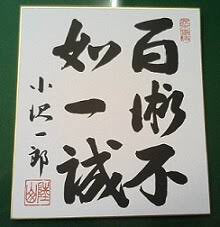 百術不
如一誠
小沢一郎